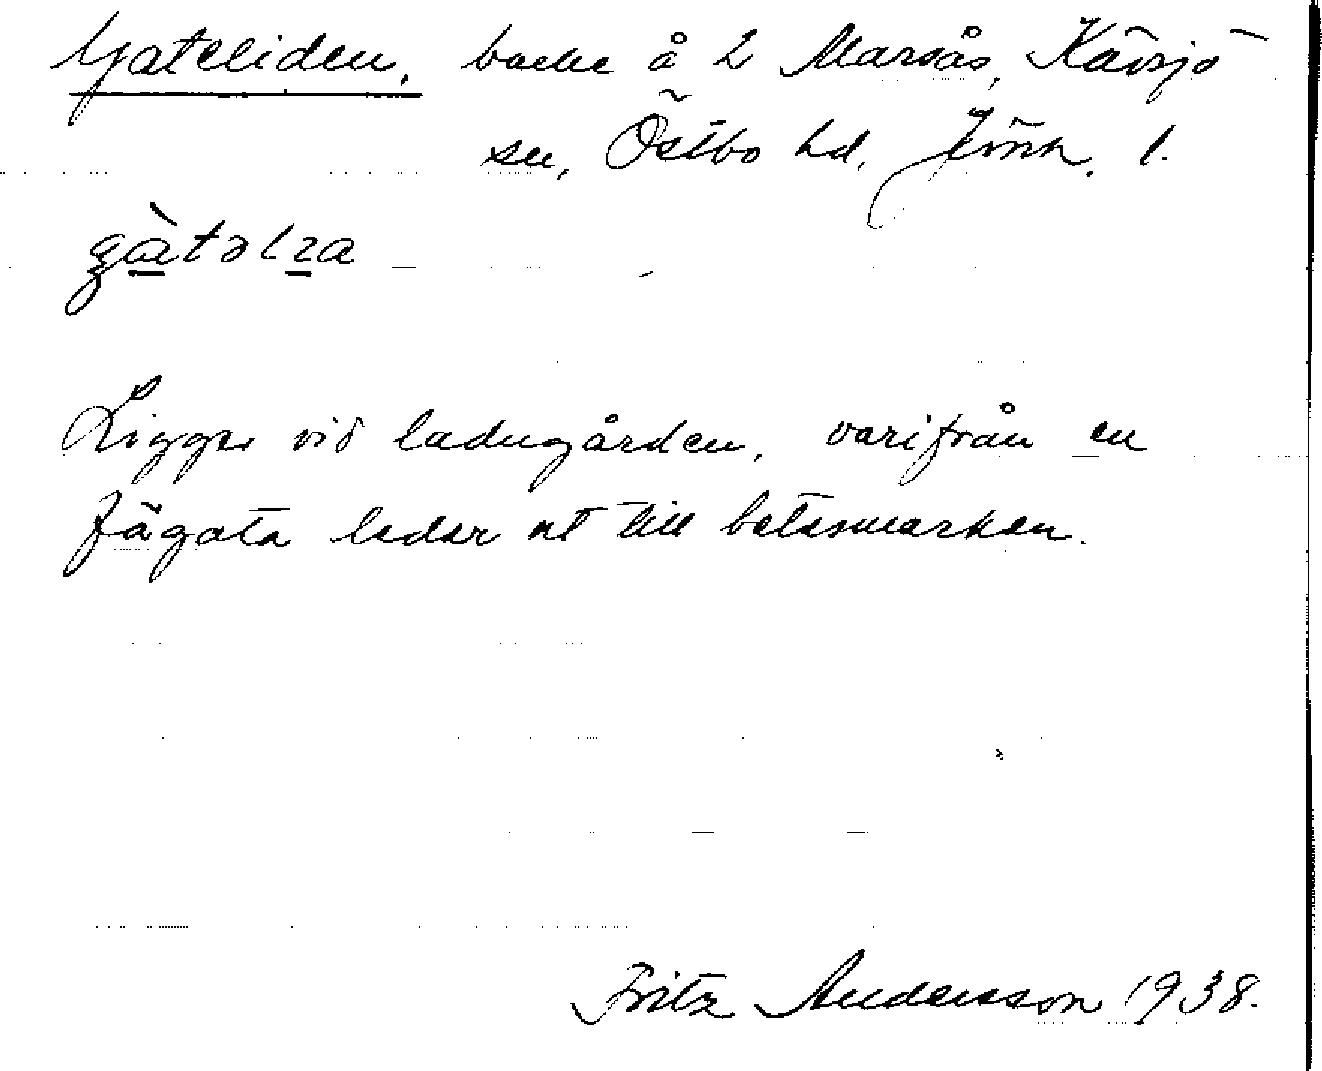 Gateliden, backe å L Marsås, Kävsjö
sn, Östbo hd, Jönk. l.
gàtəlɪa
Ligger vid ladugården, varifrån en
fägata leder ut till betesmarken.
Fritz Andersson 1938.